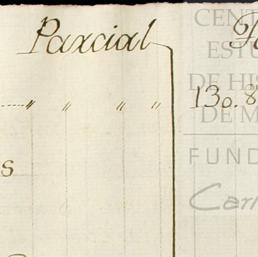 Parcial
CENT
ESTU
DE HIS
DE M
130.8
" " " "
s
FUND
Carl